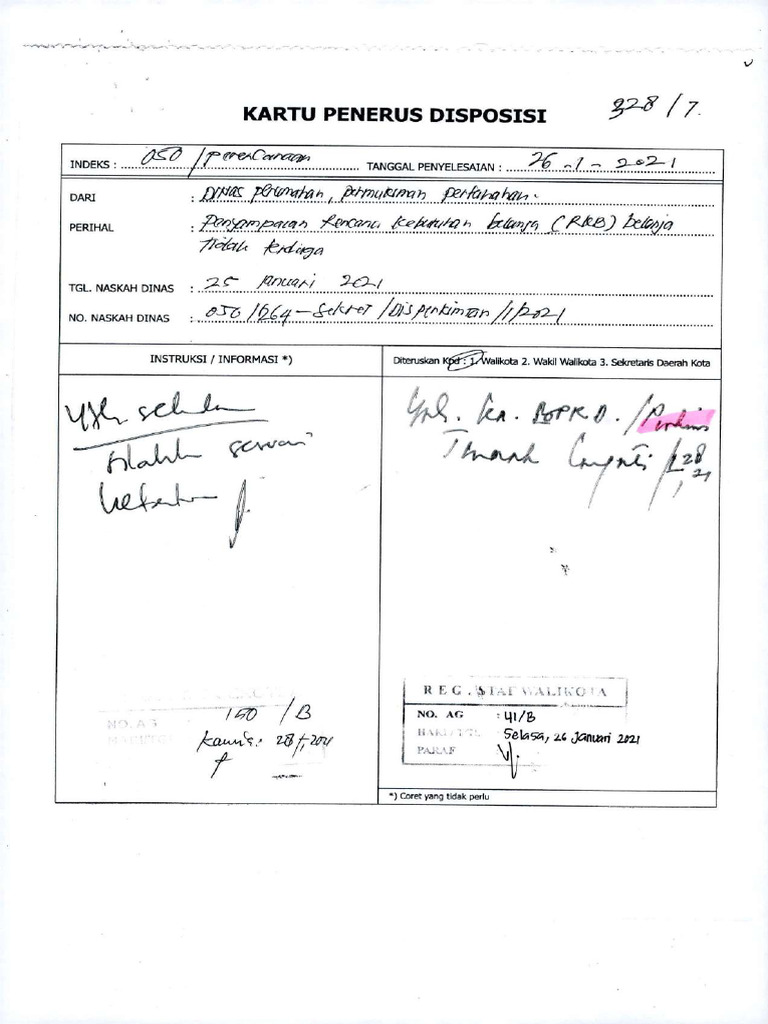 328/7.
KARTU PENERUS DISPOSISI
INDEKS : 050 / perencanaan TANGGAL PENYELESAIAN : 26 - 1 - 2021
DARI : Dinas perumahan, permukiman pertanahan.
PERIHAL : Penyampaian Rencana Kebutuhan belanja (RKB) belanja
tidak terduga
TGL. NASKAH DINAS : 25 januari 2021
NO. NASKAH DINAS : 050/664-Sekret/Disperkimtan/I/2021
INSTRUKSI / INFORMASI *)
Diteruskan Kpd : 1. Walikota 2. Wakil Walikota 3. Sekretaris Daerah Kota
Yth. sekda
silahkan sesuai
ketentuan
Yth. Ka.
REG. STAF WALIKOTA
NO. AG : 41/B
HARI/TGL : Selasa, 26 Januari 2021
PARAF
NO. AG 150 /B
Kamis: 28/1, 2021
*) Coret yang tidak perlu